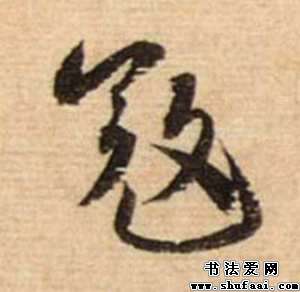 寇
书法爱网
www.shufaai.com